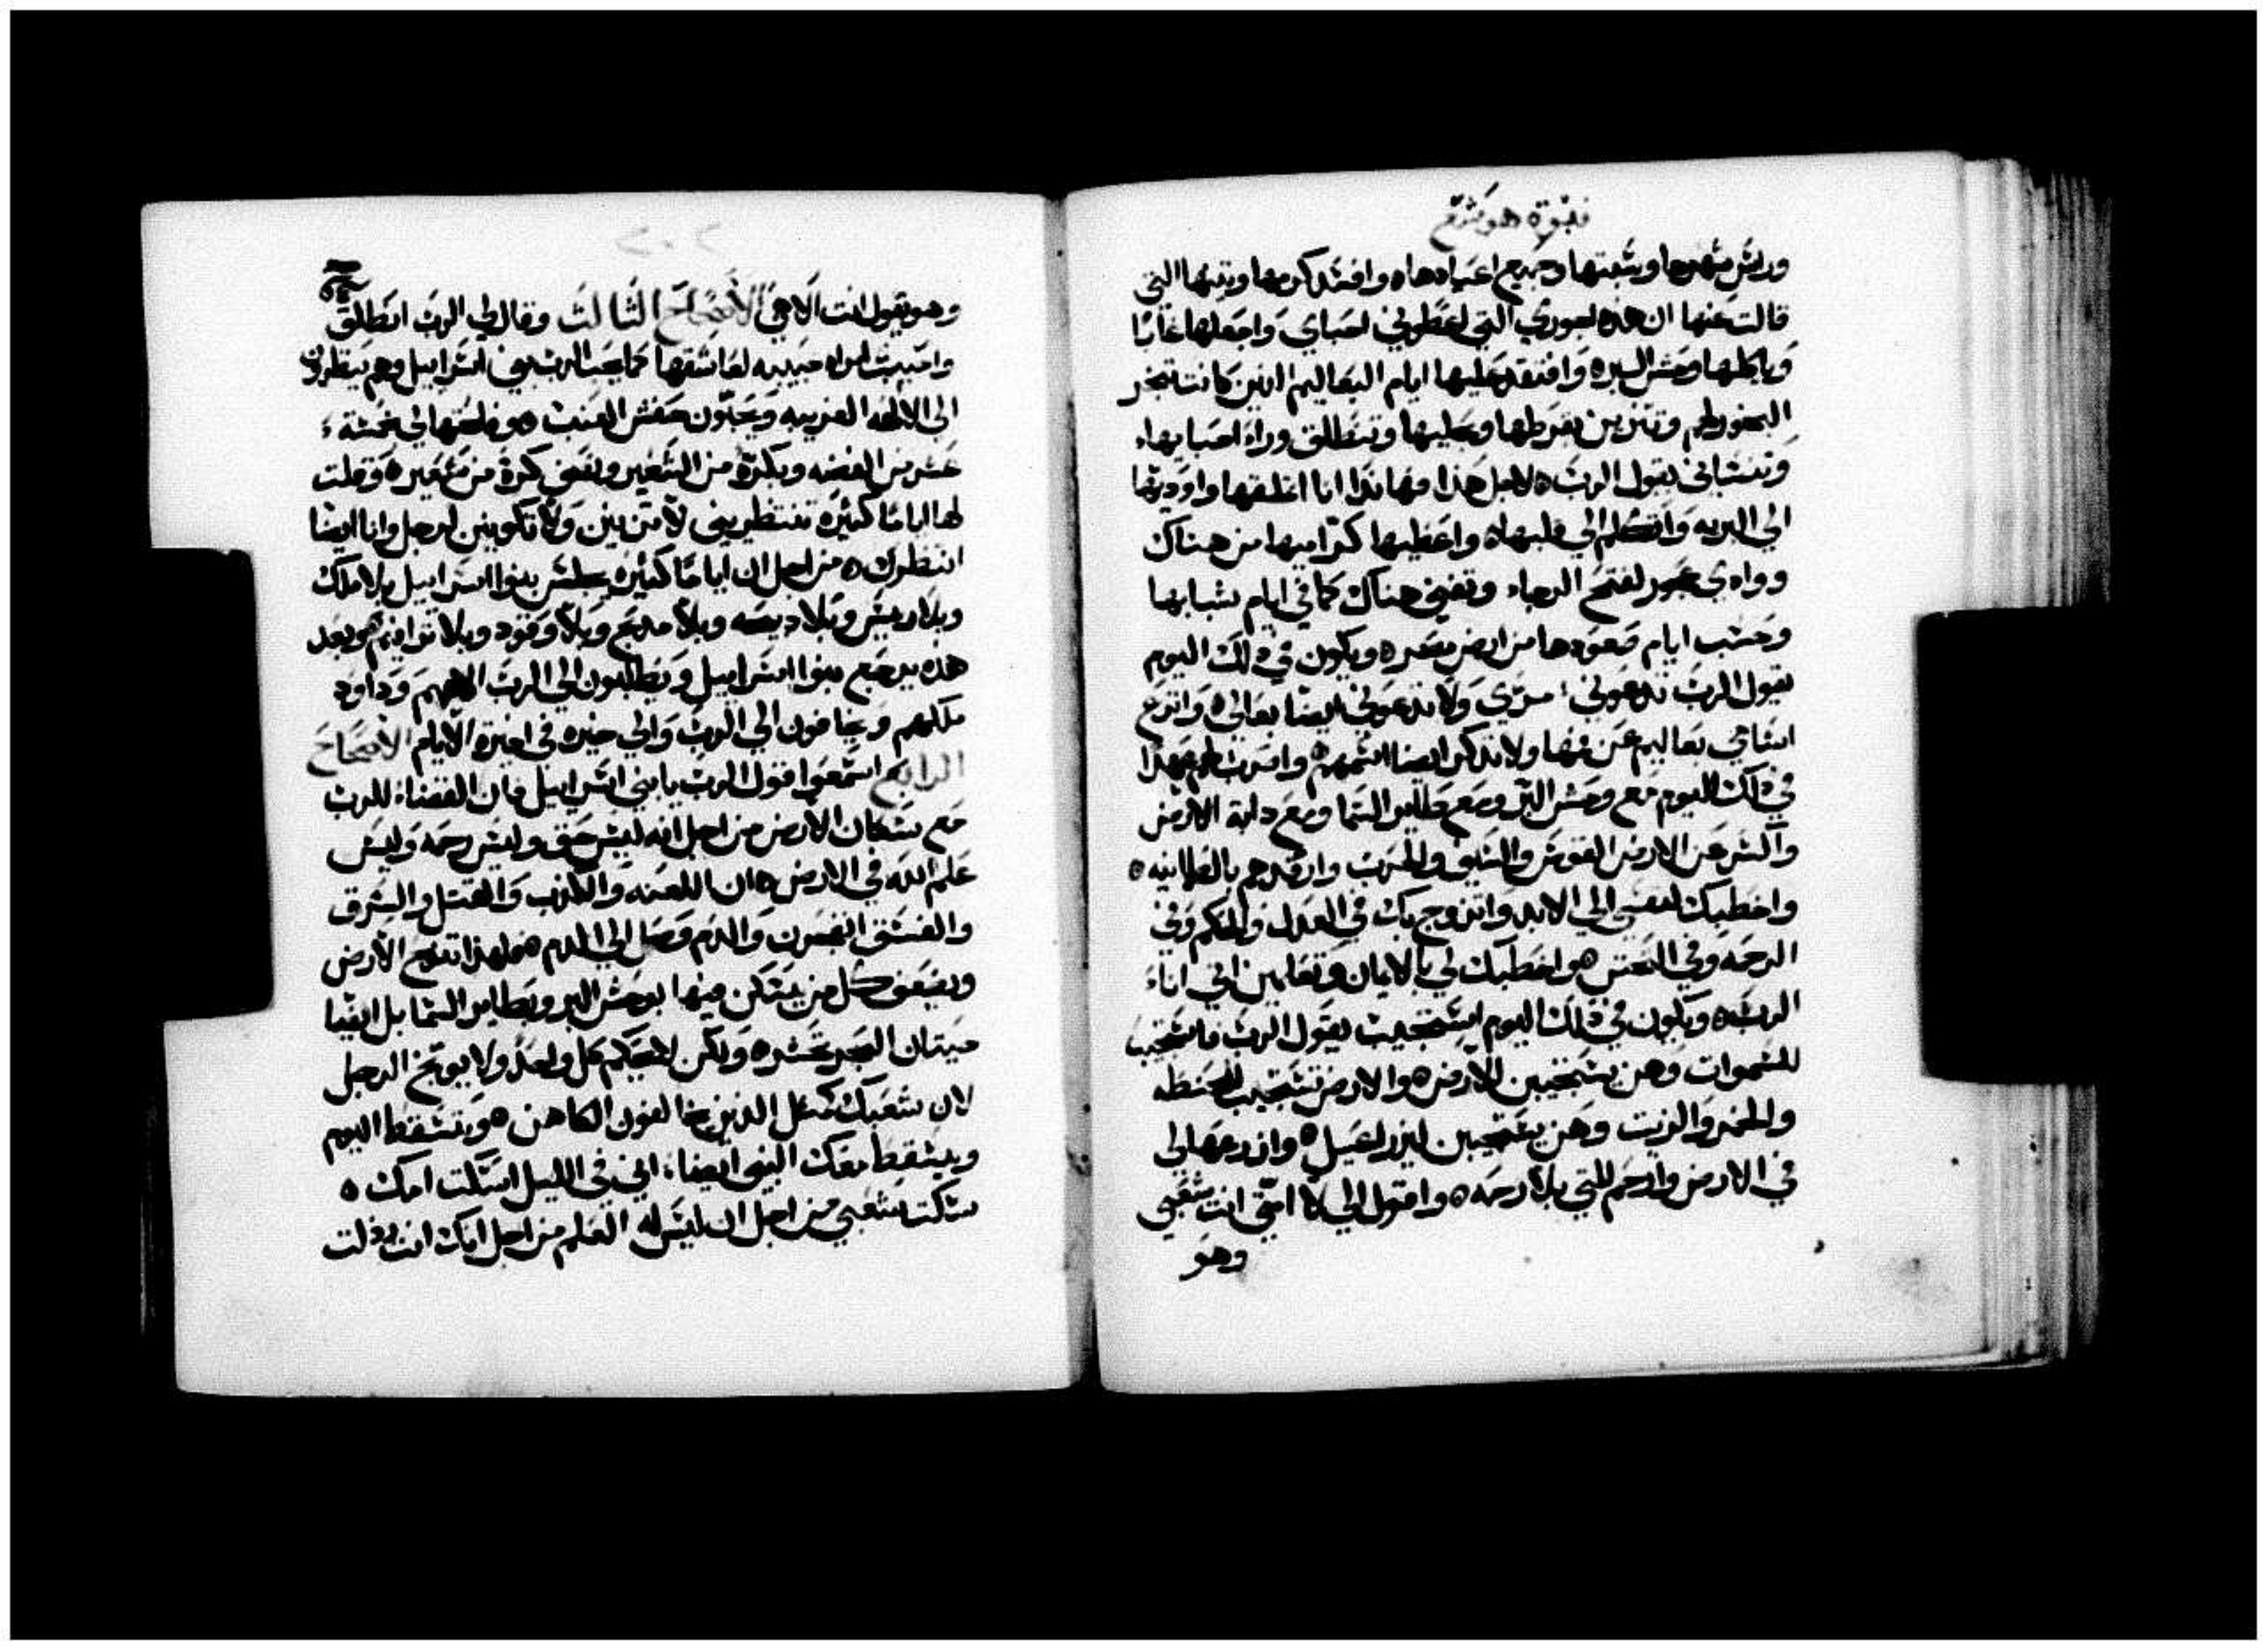 نبوة هوشع
وراس شهرها وسبتها وجميع اعيادها ه وافسد كرمها وتينها التي
قالت عنها ان هذه اجوري التي اعطوني احباي واجعلها غابًا
وياكلها وحش البر ه وافتقد عليها ايام البعاليم الذين كانت تبخر
البخور لهم وتتزين بقرطها وحليها وتنطلق وراء احبابهاء
وتنساني يقول الرب ه لاجل هذا فهانذا انا اغلقها واوديها
الي البريه واتكلم الي قلبها ه واعطيها كراميها من هناك
ووادي عجور لفتح الرجاء وتغني هناك كما في ايام شبابها
وحسب ايام صعودها من ارض مصر ه ويكون في ذلك اليوم
يقول الرب تدعوني مري ولا تدعوني ايضا بعالي ه وانزع
اسامي بعاليم عن فمها ولا تذكر ايضا اسمهم ه واضرب لهم عهدا
في ذلك اليوم مع وحش البر ومع طاير السما ومع دابة الارض
واكسر عن الارض القوس والسيف والحرب وارقدهم بالطمانينه ه
واخطبك لنفسي الي الابد واتزوج بك في العدل والحكم وفي
الرحمه وفي التحنن ه واخطبك لي بالايمان وتعلمين اني اناء
الرب ه ويكون في ذلك اليوم استجيب يقول الرب فاستجيب
للسموات وهن يستجيبين للارض ه والارض تستجيب للحنطه
والخمر والزيت وهن يستجيبين ليزراعيل ه وازرعها لي
في الارض وارحم للتي بلا رحمه ه واقول الي لا امتي انت شعبي
وهو
٢٠٢
وهو يقول انت الاهي الاصحاح الثالث وقال لي الرب انطلق
واحبب امراه حبيبه لعاشقها كما يحب الرب بني اسراييل وهم ينظرون
الي الالهه الغريبه ويحبون حفش العنب ه وفلحتها لي بخمسة
عشر من الفضه وبكرة من الشعير ونصف كرة من شعير ه وقلت
لها اياما كثيره تنتظريني لا تزنين ولا تكونين لرجل وانا ايضا
انتظرك ه من اجل ان اياما كثيره يجلس بنوا اسراييل بلا ملك
وبلا ريس وبلا ديحه وبلا مدبح وبلا وقود وبلا توافيم ه وبعد
هذه يرجع بنوا اسراييل ويطلبون الي الرب الاههم وداود
ملكهم ويخافون الي الرب والي خيره في اخرة الايام الاصحاح
الرابع اسمعوا قول الرب يا بني اسراييل فان القضاء للرب
مع سكان الارض من اجل انه ليس حق وليس رحمه وليس
علم الله في الارض ه ان اللعنه والكذب والقتل والسرق
والفسق انفجرن والدم وصل الي الدم ه لهذا تنوح الارض
ويضعف كل من يسكن فيها بوحش البر وبطاير السما بل ايضا
حيتان البحر تحشر ه ولكن لا يحكم كل واحد ولا يوبخ الرجل
لان شعبك كمثل الذين يخالفون الكاهن ه وتسقط اليوم
ويسقط معك النبي ايضا اني في الليل اسكت امك ه
سكت شعبي من اجل ان ليس له العلم من اجل انك انت رذلت